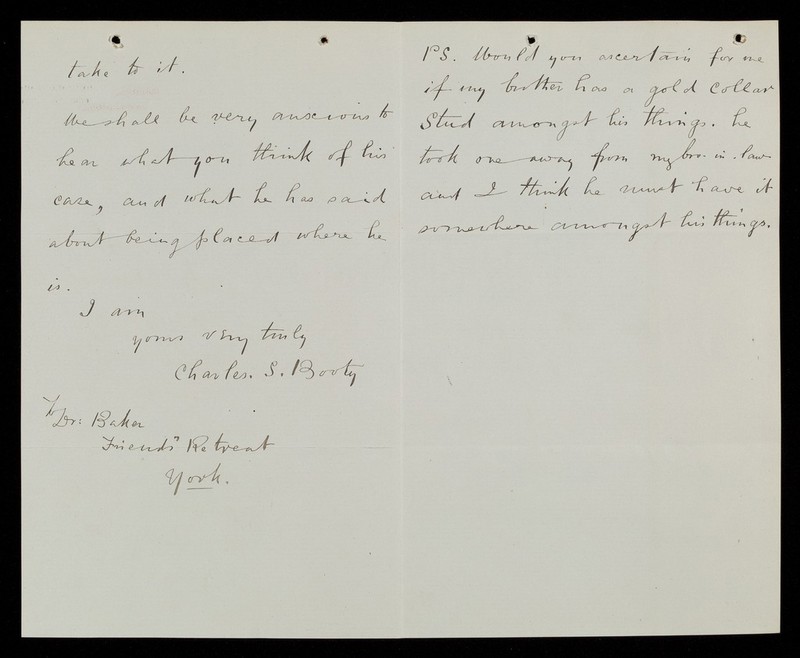 take to it.
We shall be very anxious to
hear what you think of his
case, and what he has said
about being placed where he
is.
I am
yours very truly
Charles. S. Booty
To Dr: Baker
Friends' Retreat
York.
PS. Would you ascertain for me
if my brother has a gold collar
Stud amongst his things. he
took one away from my bro. in. law
and I think he must have it
somewhere amongst his things.